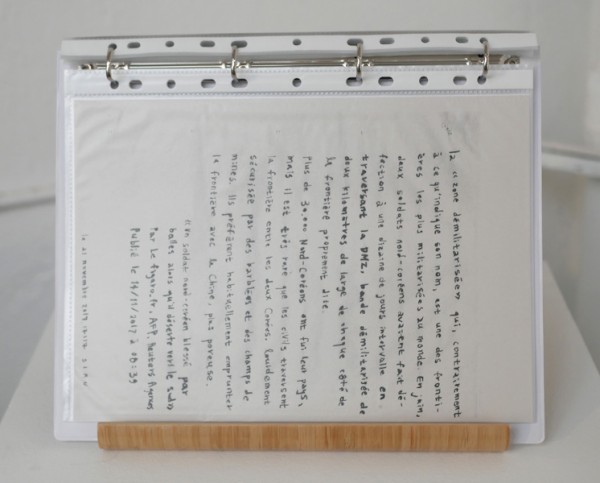 la «zone démilitarisée» qui, contrairement
à ce qu'indique son nom, est une des fronti-
ères les plus militarisées au monde. En juin,
deux soldats nord-coréens avaient fait dé-
fection à une dizaine de jours intervalle en
traversant la DMZ, bande démilitarisée de
deux kilomètres de large de chaque côté de
la frontière proprement dite.
Plus de 30.000 Nord-Coréens ont fui leur pays,
mais il est très rare que les civils traversent
la frontière entre les deux Corées, lourdement
sécurisée par des barbelés et des champs de
mines. Ils préfèrent habituellement emprunter
la frontière avec la Chine, plus poreuse.
«Un soldat nord-coréen blessé par
balles alors qu'il déserte vers le Sud»
Par Le figaro.fr, AFP, Reuters Agences
Publié le 14/11/2017 à 08:39
le 21 novembre 2017